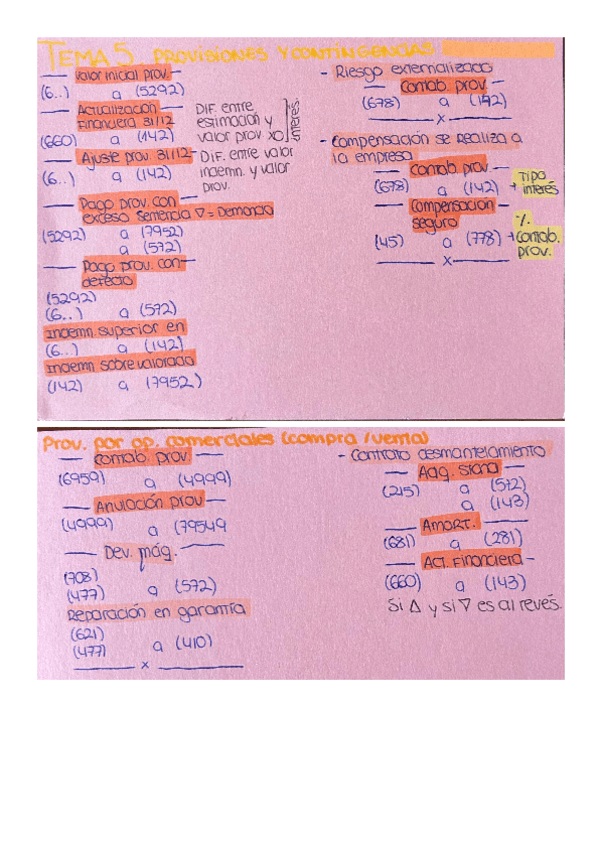 TEMA 5 PROVISIONES Y CONTINGENCIAS
valor inicial prov.
(6..) a (5292)
Actualización
financiera 31/12
(660) a (142)
DIF. entre
estimación y
valor prov. x0
interés.
Ajuste prov. 31/12
(6..) a (142)
DIF. entre valor
indemn. y valor
prov.
Pago prov. con
exceso sentencia ∇ = Demanda
(5292) a (7952)
a (572)
Pago prov. con
defecto
(5292)
(6..) a (572)
Indemn. superior en
(6..) a (142)
Indemn sobrevalorada
(142) a (7952)
- Riesgo externalizado
Contab. prov.
(678) a (142)
x
- Compensación se realiza a
la empresa
Contab. prov.
(678) a (142) + Tipo
interés
Compensación
seguro
(45) a (778) + %
Contab.
prov.
x
Prov. por op. comerciales (compra / venta)
Contab. prov.
(6959) a (4999)
Anulación prov
(4999) a (79549
Dev. máq.
(708)
(477) a (572)
Reparación en garantía
(621)
(477) a (410)
x
- Contrato desmantelamiento
Adq. Siona
(215) a (572)
a (143)
AMORT.
(681) a (281)
ACT. Financiera
(660) a (143)
Si Δ y si ∇ es al revés.